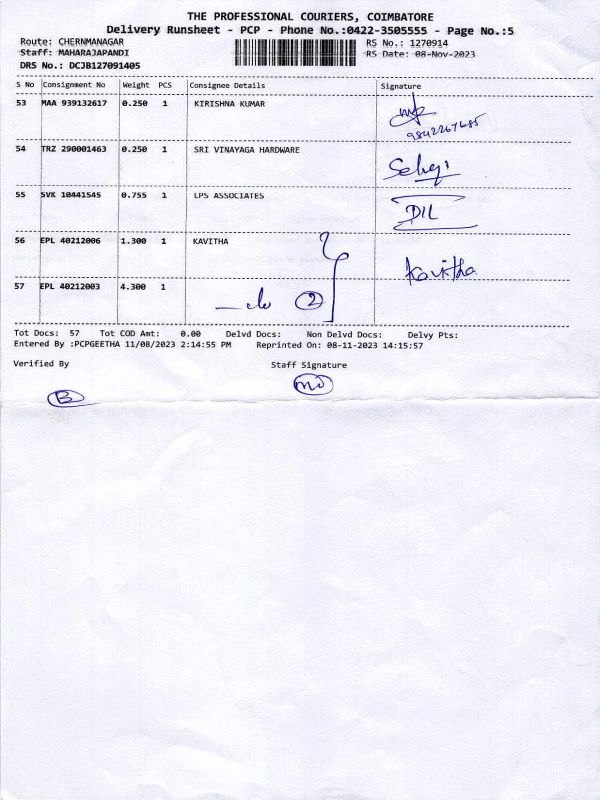 THE PROFESSIONAL COURIERS, COIMBATORE
Delivery Runsheet - PCP - Phone No.:0422-3505555 - Page No.:5
Route: CHERNMANAGAR RS No.: 1270914
Staff: MAHARAJAPANDI RS Date: 08-Nov-2023
DRS No.: DCJB127091405
S No Consignment No Weight PCS Consignee Details Signature
53 MAA 939132617 0.250 1 KIRISHNA KUMAR
9842267685
54 TRZ 290001463 0.250 1 SRI VINAYAGA HARDWARE
55 SVK 10441545 0.755 1 LPS ASSOCIATES
DIL
56 EPL 40212006 1.300 1 KAVITHA
Kavitha
57 EPL 40212003 4.300 1
—do 2
Tot Docs: 57 Tot COD Amt: 0.00 Delvd Docs: Non Delvd Docs: Delvy Pts:
Entered By :PCPGEETHA 11/08/2023 2:14:55 PM Reprinted On: 08-11-2023 14:15:57
Verified By Staff Signature
B